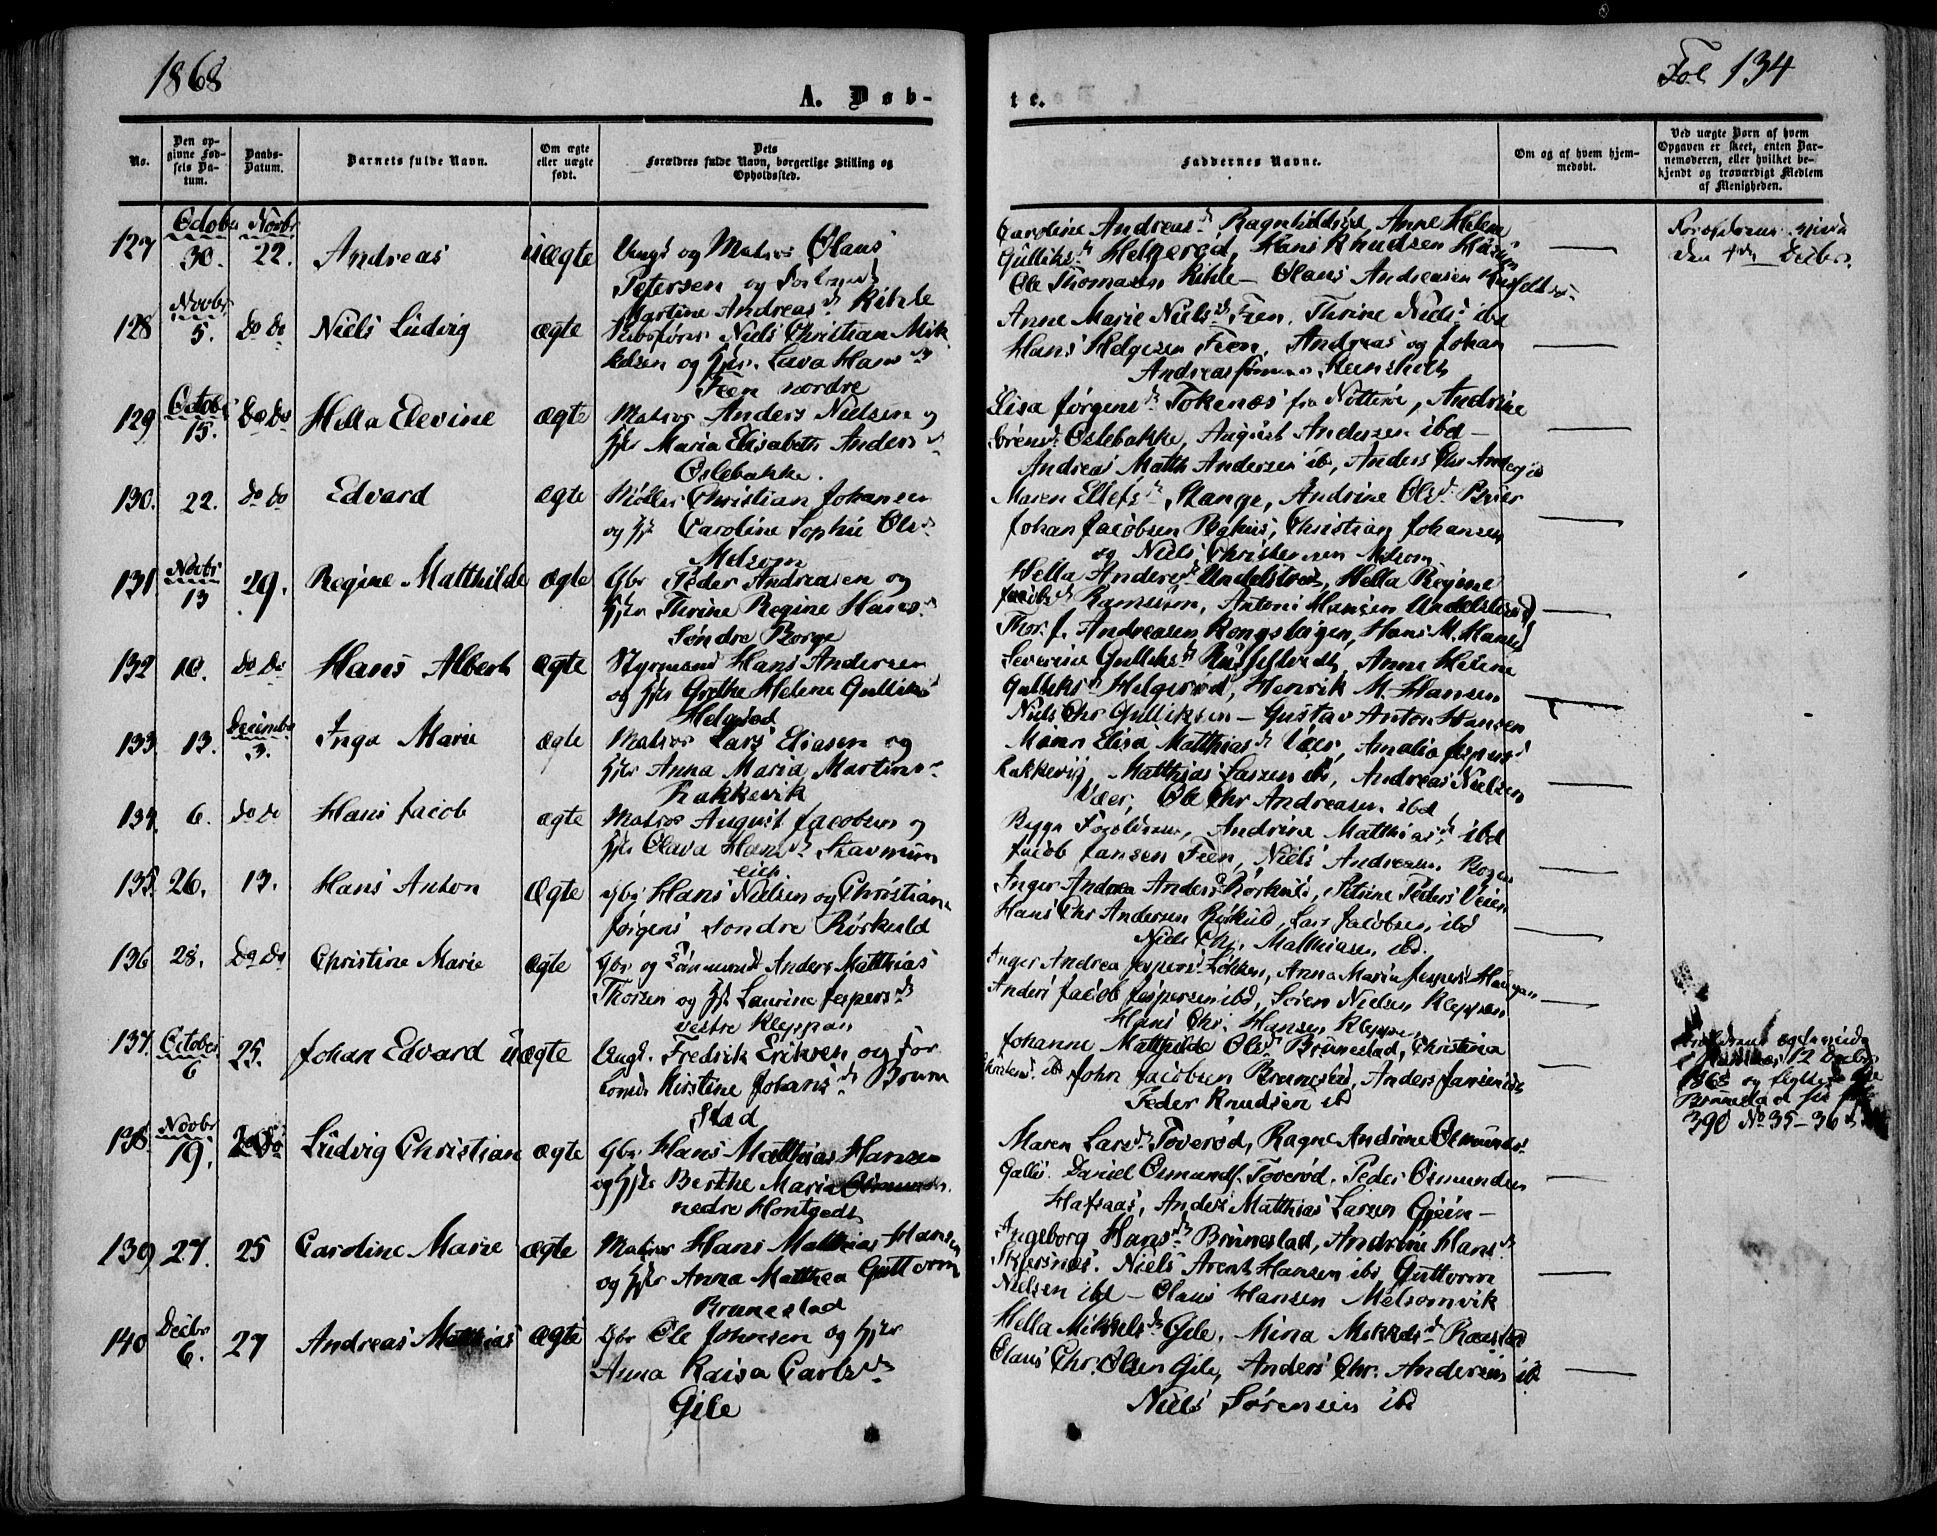 1868
Fol 134
A. Døb-
te.
No.
Den op-
givne Fød-
sels Da-
tum.
Daabs-
Datum.
Barnets fulde Navn.
Om ægte
eller uægte
født.
Dets
Forældres fulde Navn, borgerlige Stilling og
Opholdssted.
Faddernes Navne.
Om og af hvem hjem-
medøbt.
Ved uægte Børn af hvem
Opgaven er skeet, enten Bar-
nemoderen, eller hvilket be-
kjendt og troværdigt Medlem
af Menigheden.
127 October 30. Novbr 22. Andreas uægte Ungk og Matros Olaus
Petersen og
Martine Andreasd. Kihle
Caroline Andreasd. Anne Helene
Gulliksd. Helgerød, Hans Knudsen
Ole Thomasen Kihle - Olaus Andreasen
den 4de Decbr.
128 Novbr 5. do do Niels Ludvig ægte Niels Christian Mik
kelsen og Hjr. Lava Hansd.
Feen nordre
Anne Marie Nielsd. Feen, Thrine Nielsd. ibd
Hans Helgesen Feen, Andreas og Johan
129 October 15. do do Hella Elevine ægte Matros Anders Nielsen og
Hjr Maria Elisabeth Andersd.
Oslebakke.
Elisa Jørgensd. Tokenæs fra Nøtterø, Andrine
Sørensd. Oslebakke, August Andersen ibd -
Andreas Matth Andersen ib, Anders Chr
130. 22. do do Edvard ægte Møller Christian Johansen
og Hjr Caroline Sophie Olsd.
Melsom
Maren Ellefsd. Stange, Andrine Olsd.
Johan Jacobsen Christian Johansen
og Niels Christensen Melsom
131 Novbr 13 29. Regine Matthilde ægte Gbr Peder Andreasen og
Hjr Thrine Regine Hansd.
Søndre Borge
Hella Andersd. Undelstved, Hella Regine
Jacobsd. Ramsum, Antoni Hansen Undelstved
Thor. J. Andreasen Hans M. Hansen
132 10. do do Hans Albert ægte Styrmand Hans Andersen
og Hjr Grethe Helene Gulliksd.
Helgerød
Severine Gulliksd. Anne Helene
Gulliksd. Helgerød, Henrik M. Hansen
Niels Chr Gulliksen - Gustav Anton Hansen
133 13. December 3. Inga Marie ægte Matros Lars Eliasen og
Hjr Anna Maria Martinsd.
Rakkevik
Maren Elisa Matthiasd. Væer, Amalia Jespersd.
Rakkevig, Matthias Larsen ib, Andreas Nielsen
Væer, Ole Chr Andreasen ibd
134. 6. do do Hans Jacob ægte Matros August Jacobsen og
Hjr Olava Hansd.
Begge Forældrene, Andrine Matthiasd. ibd
Jacob Jansen Feen, Niels Andreasen
135. 26. 13. Hans Anton ægte Gbr Hans Nielsen og Christiane
Jørgensd Søndre Rørkuld
Inger Andrea Andersd Rørkuld, Petrine Pedersd Veien
Hans Chr Andersen Rørkuld, Lars Jacobsen ibd
Niels Chr. Matthiasen ibd.
136 28. do do Christine Marie ægte Gbr og Anders Matthias
Thorsen og Hjr Laurine Jespersd.
vestre Kleppan
Inger Andrea Jespersd. Løkken, Anna Maria Jespersd
Anders Jacob Jespersen ibd, Søren Nielsen Kleppan
Hans Chr. Hansen Kleppan
137. October 6 25. Johan Edvard uægte Ungk. Fredrik Eriksen og For
lovede Kirstine Johansd. Brune
stad
Johanne Matthilde Olsd. Brunestad, Christina
ibd John Jacobsen Brunestad, Anders Jansen ibd
Peder Knudsen ib
12 Decbr
1868 og
Brunestad
390 No 35-36
138 Novbr 19. do do Ludvig Christian ægte Gbr Hans Matthias Hansen
og Hjr Berthe Maria
nedre Hontgedt
Maren Larsd. Toverød, Ragne Andrine Osmundsd.
Gallis Daniel Osmunds. Toverød, Peder Osmundsen
Hafsaas, Anders Matthias Larsen Gjein -
139 27. 25 Caroline Marie ægte Matros Hans Matthias Hansen
og Hjr Anna Matthea Guttorm
Brunestad
Ingeborg Hansd. Brunestad, Andrine Hansd.
Niels Arent Hansen ibd, Guttorm
Nielsen ibd - Olaus Hansen Melsomvik
140 Decbr 6. 27 Andreas Matthias ægte Gbr Ole Johnsen og Hjr
Anna Raisa Carlsd.
Gile
Hella Mikkelsd. Gile, Mina Mikkelsd. Raastad
Olaus Chr. Olsen Gile, Anders Chr. Andersen ib
Niels Sørensen ibd